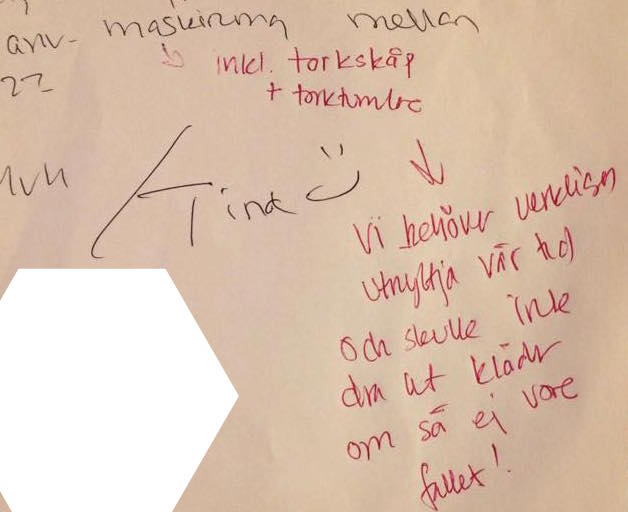 anv- maskinerna mellan
22
inkl. torkskåp
+ torktumlare
Mvh
/Tina :)
Vi behöver verkligen
utnyttja vår tid
och skulle inte
dra ut kläder
om så ej vore
fallet!